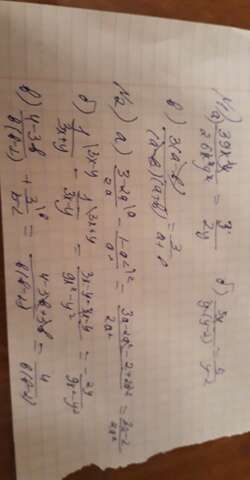 №1 а) 39x³y / 26x²y² = 3x / 2y б) 5y / y(y-2) = 5 / y-2
в) 3(a-b) / (a-b)(a+b) = 3 / a+b
№2 а) 3-2a / 2a - 1-a² / a² = 3a-2a²-2+2a² / 2a² = 3a-2 / 2a²
б) 1 / 3x+y - 1 / 3x-y = 3x-y-3x-y / 9x²-y² = - 2y / 9x²-y²
в) 4-3b / b(b-2) + 3 / b-2 = 4-3b+3b / b(b-2) = 4 / b(b-2)